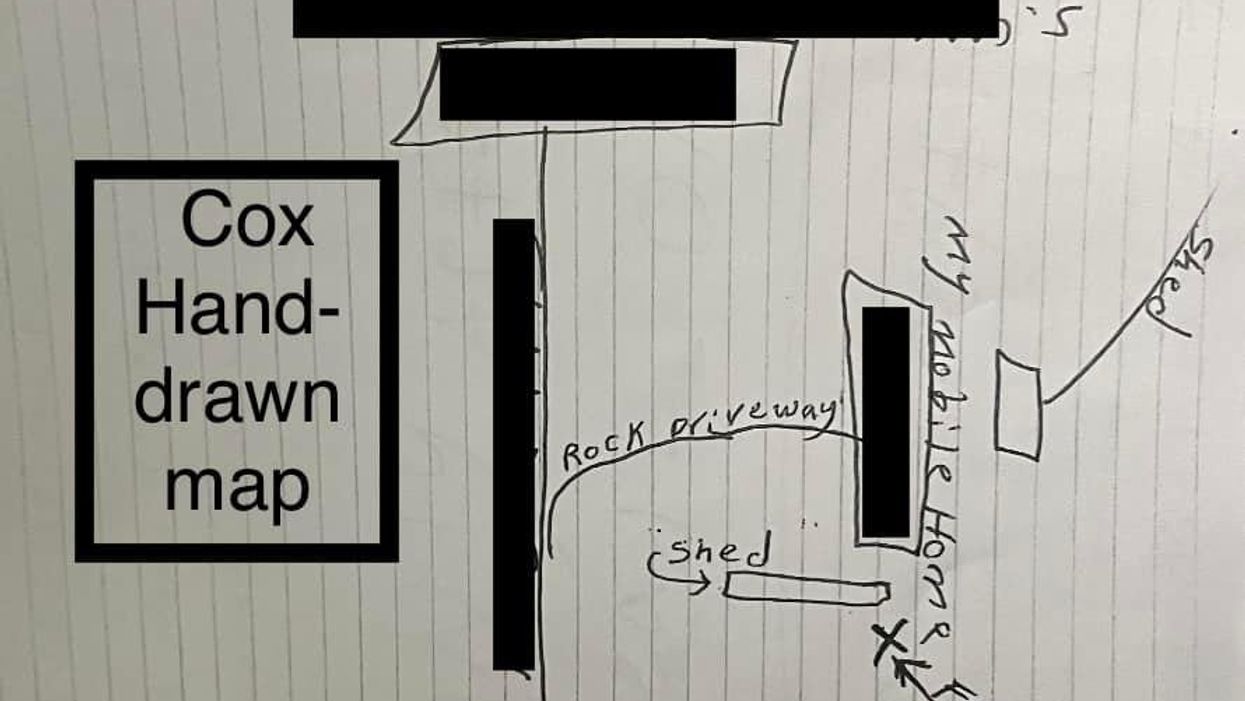 Cox
Hand-
drawn
map
My Mobile Home
Shed
Rock Driveway
"Shed"
X